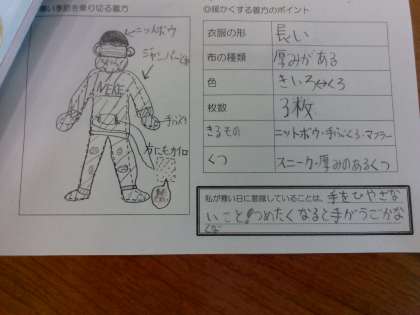 い季節を乗り切る着方
ニットボウ
ジャンパー
NEKE
手ぶくろ
カイロ
◎暖かくする着方のポイント
衣服の形 長い
布の種類 厚みがある
色 きいろ↔くろ
枚数 3枚
きるもの ニットボウ・手ぶくろ・マフラー
くつ スニーカ・厚みのあるくつ
私が寒い日に意識していることは、手をひやさな
いこと つめたくなると手がうごかな
くな